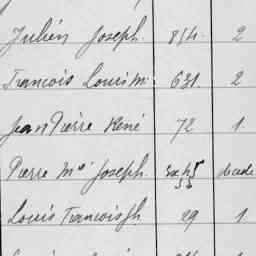 Julien Joseph. 814. 2
François Louis M. 631. 2
Jean Pierre René 72 1.
Pierre Mie Joseph.
Louis François Jh. 29 1